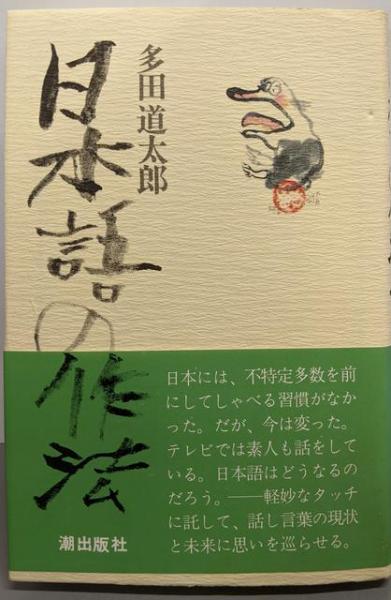 多田道太郎
日本語の作法
日本には、不特定多数を前
にしてしゃべる習慣がなか
った。だが、今は変った。
テレビでは素人も話をして
いる。日本語はどうなるの
だろう。──軽妙なタッチ
に託して、話し言葉の現状
と未来に思いを巡らせる。
潮出版社